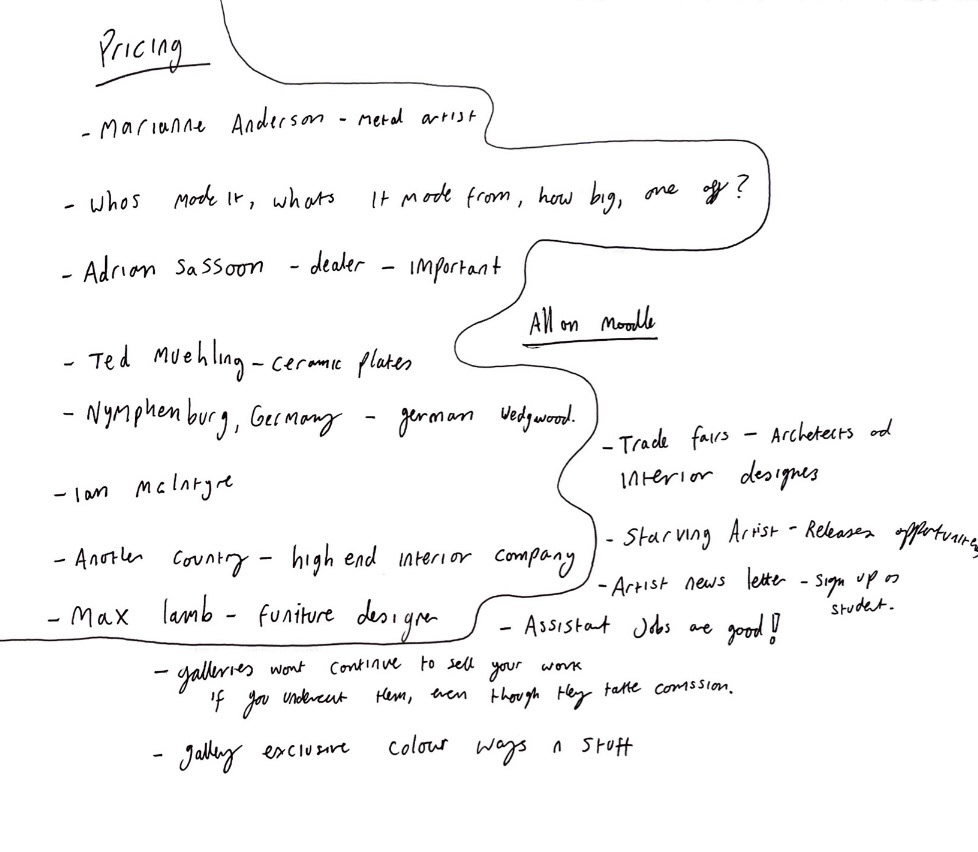 Pricing
- Marianne Anderson - metal artist
- whos made it, whats it made from, how big, one off?
- Adrian Sassoon - dealer - important
All on moodle
- Ted Muehling - ceramic plates
- Nymphenburg, Germany - german wedgwood.
- Trade fairs - Archetects ad
interior designes
- Ian McIntyre
- Starving Artist - Releases opportunites
- Another country - high end interior company
- Artist news letter - sign up as
student.
- Max lamb - funiture designer
- Assistant Jobs are good!
- galleries wont continue to sell your work
if you undercut them, even though they take comssion.
- gallery exclusive colour ways n stuff